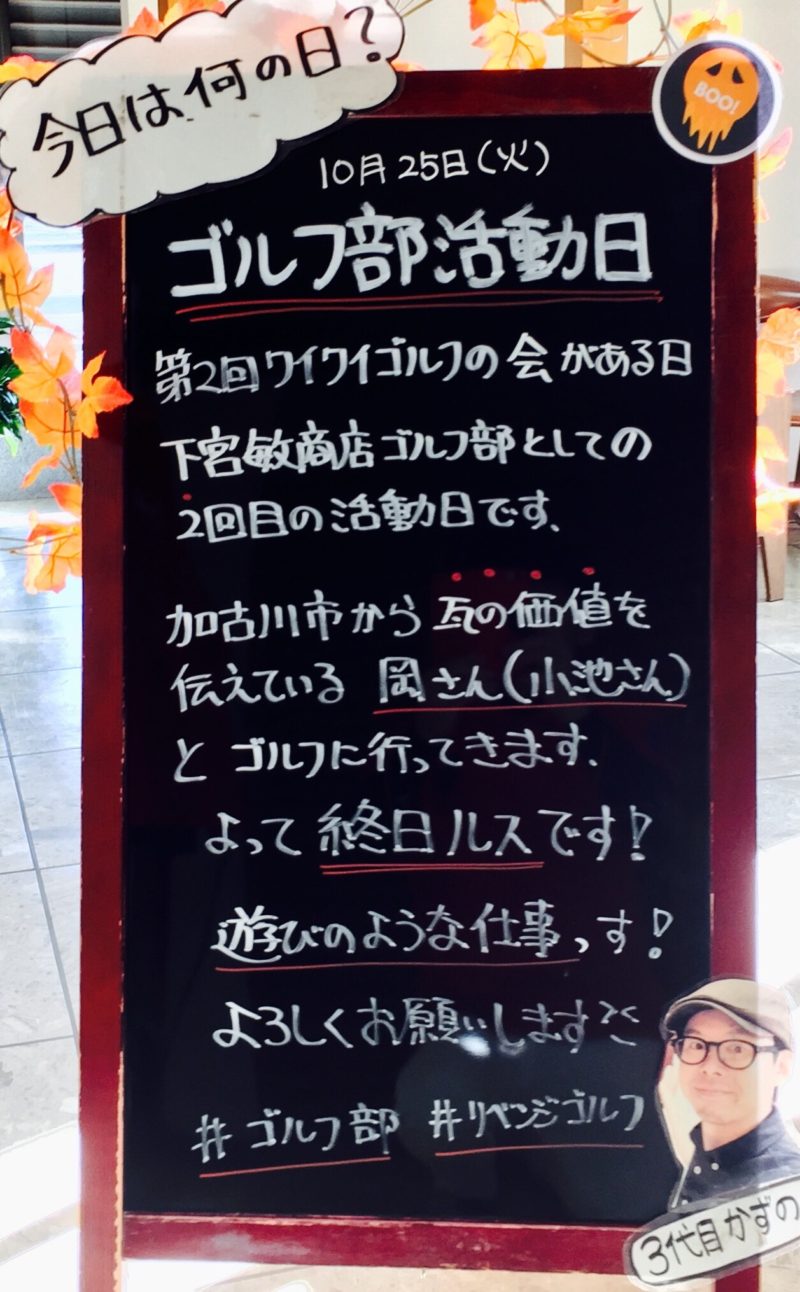 今日は何の日?
BOO!
10月25日(火)
ゴルフ部活動日
第2回ワイワイゴルフの会がある日
下宮敏商店ゴルフ部としての
2回目の活動日です、
加古川市から瓦の価値を
伝えている 岡さん(小池さん)
とゴルフに行ってきます.
よって終日ルスです!
遊びのような仕事っす!
よろしくお願いします
#ゴルフ部 #リベンジゴルフ
3代目かずの